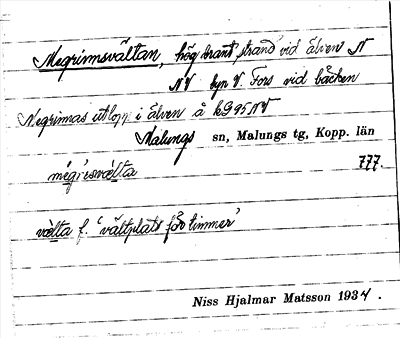 Megrimsvältan, hög brant strand vid älven N
NV byn V. Fors vid bäcken
Megrimas utlopp i älven å kg 95 NV
Malungs sn, Malungs tg, Kopp. län
mégri̇̀svælta 777.
vælta f. 'vältplats för timmer'
Niss Hjalmar Matsson 1934.